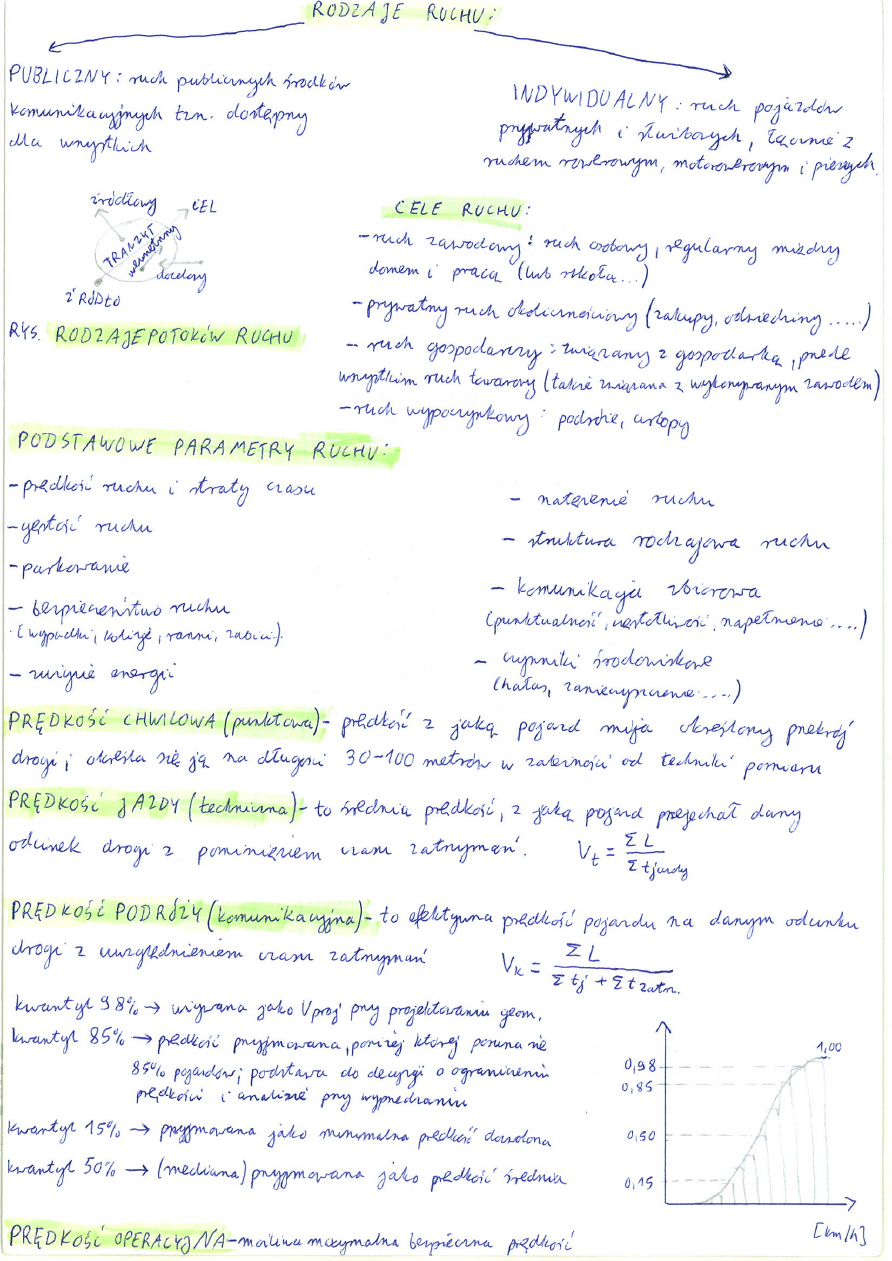 RODZAJE RUCHU:
PUBLICZNY: ruch publicznych środków
komunikacyjnych tzn. dostępny
dla wszystkich
INDYWIDUALNY: ruch pojazdów
prywatnych i służbowych, łącznie z
ruchem rowerowym, motorowerowym i pieszych.
źródłowy
CEL
TRANZYT
wewnętrzny
docelowy
ŹRÓDŁO
RYS. RODZAJE POTOKÓW RUCHU
CELE RUCHU:
- ruch zawodowy: ruch osobowy, regularny między
domem i pracą (lub szkołą...)
- prywatny ruch okolicznościowy (zakupy, odwiedziny.....)
- ruch gospodarczy: związany z gospodarką, przede
wszystkim ruch towarowy (także związana z wykonywanym zawodem)
- ruch wypoczynkowy: podróże, urlopy
PODSTAWOWE PARAMETRY RUCHU:
- prędkość ruchu i straty czasu
- gęstość ruchu
- parkowanie
- bezpieczeństwo ruchu
(wypadki, kolizje, ranni, zabici).
- zużycie energii
- natężenie ruchu
- struktura rodzajowa ruchu
- komunikacja zbiorowa
(punktualność, częstotliwość, napełnienie....)
- czynniki środowiskowe
(hałas, zanieczyszczenie....)
PRĘDKOŚĆ CHWILOWA (punktowa) - prędkość z jaką pojazd mija określony przekrój
drogi; określa się ją na długości 30-100 metrów w zależności od techniki pomiaru
PRĘDKOŚĆ JAZDY (techniczna) - to średnia prędkość, z jaką pojazd przejechał dany
odcinek drogi z pominięciem czasu zatrzymań. Vt = ΣL / Σtjazdy
PRĘDKOŚĆ PODRÓŻY (komunikacyjna) - to efektywna prędkość pojazdu na danym odcinku
drogi z uwzględnieniem czasu zatrzymań Vk = ΣL / Σtj + Σt zatrz.
kwantyl 98% → używana jako Vproj przy projektowaniu geom.
kwantyl 85% → prędkość przyjmowana, poniżej której porusza się
85% pojazdów; podstawa do decyzji o ograniczeniu
prędkości i analizie przy wyprzedzaniu
kwantyl 15% → przyjmowana jako minimalna prędkość dozwolona
kwantyl 50% → (mediana) przyjmowana jako prędkość średnia
1,00
0,98
0,85
0,50
0,15
[km/h]
PRĘDKOŚĆ OPERACYJNA - możliwa maksymalna bezpieczna prędkość